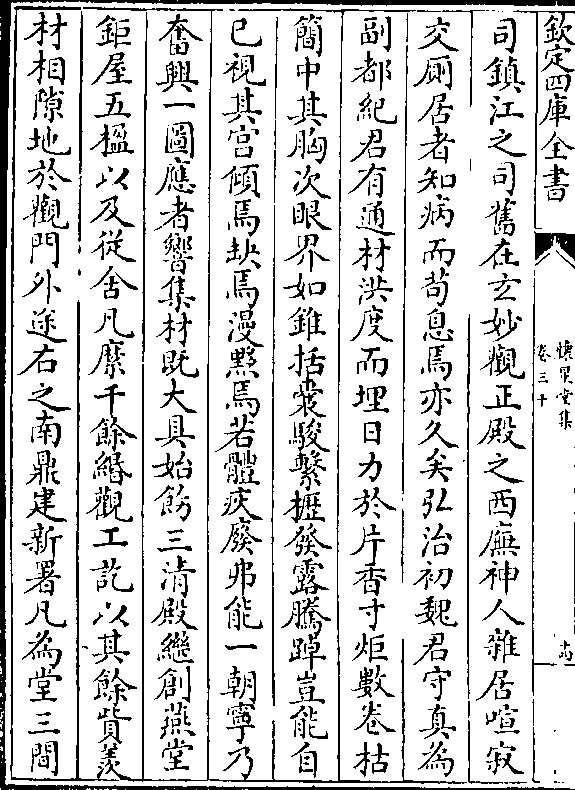 欽定四庫全書
懷星堂集
卷三十
司鎮江之司舊在玄妙觀正殿之西廡神人雜居喧寂
交厠居者知病而苟息焉亦久矣弘治初魏君守真為
副都紀君有通材洪度而埋日力於片香寸炬數卷枯
簡中其胸次眼界如錐括囊駿繫櫪發露騰踔豈能自
已視其宫傾焉缺焉漫黙焉若體疾廢弗能一朝寧乃
奮興一圖應者響集材既大具始飭三清殿繼創燕堂
鉅屋五楹以及從舍凡縻千餘緡觀工訖以其餘貲羨
材相隙地於觀門外途右之南鼎建新署凡為堂三間